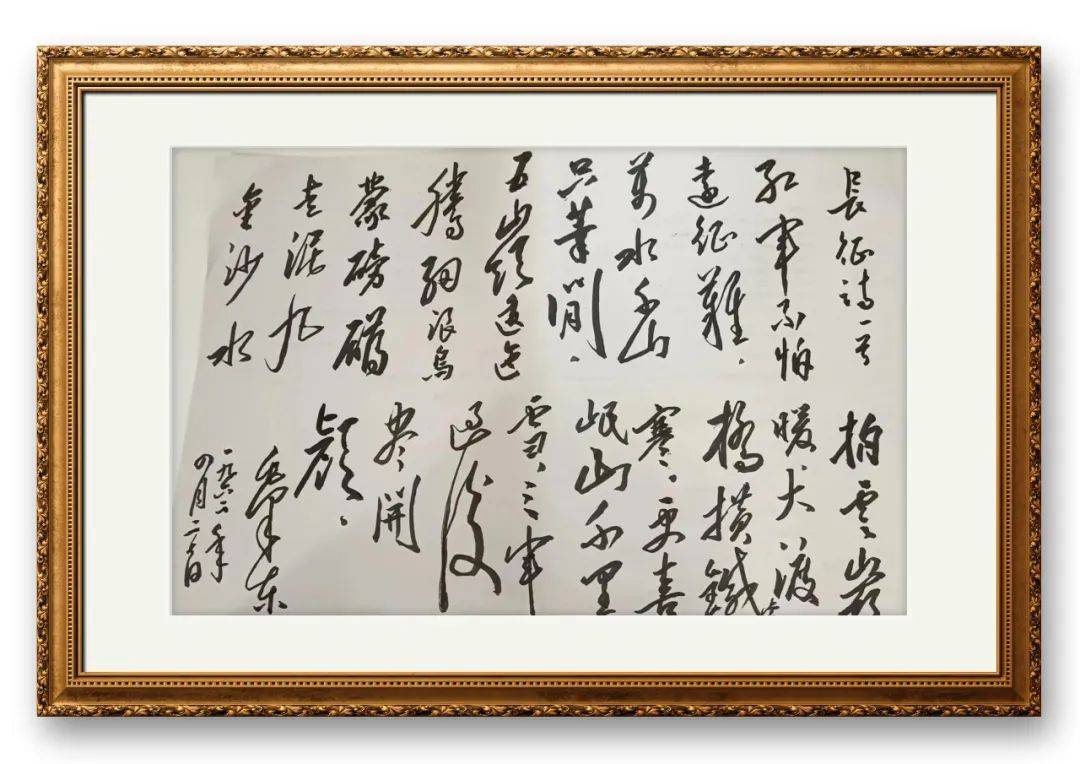 長征詩一首
紅軍不怕
遠征難，
萬水千山
只等閒。
五嶺逶迤
騰細浪烏
蒙磅礴
走泥丸
金沙水
拍雲崖
暖大渡
橋横鐵索
寒，更喜
岷山千里
雪，三軍
過後
盡開
顏。
毛澤東
一九六二年
四月二十日